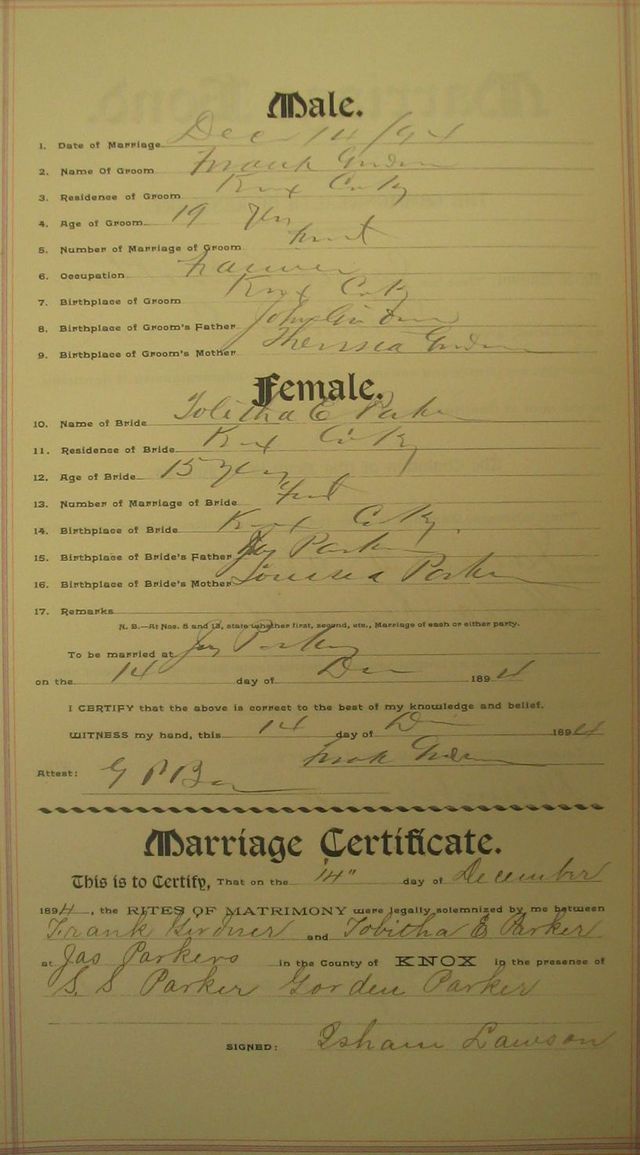 Male.
1. Date of Marriage Dec 14/94
2. Name Of Groom Frank Girdner
3. Residence of Groom Knox Co Ky
4. Age of Groom 19 Yrs
5. Number of Marriage of Groom first
6. Occupation Farmer
7. Birthplace of Groom Knox Co Ky
8. Birthplace of Groom's Father John Girdner
9. Birthplace of Groom's Mother Girdner
Female.
10. Name of Bride Tobitha E Parker
11. Residence of Bride Knox Co Ky
12. Age of Bride 15 Yrs
13. Number of Marriage of Bride First
14. Birthplace of Bride Knox Co Ky.
15. Birthplace of Bride's Father Jas Parker
16. Birthplace of Bride's Mother Parker
17. Remarks
N. B.—At Nos. 5 and 13, state whether first, second, etc., Marriage of each or either party.
To be married at Jas Parkers
on the 14 day of Dec 1894
I CERTIFY that the above is correct to the best of my knowledge and belief.
WITNESS my hand, this 14 day of Dec 1894
Frank Girdner
Attest: G P
Marriage Certificate.
This is to Certify, That on the "14" day of December
1894, the RITES OF MATRIMONY were legally solemnized by me between
Frank Girdner and Tobitha E Parker
at Jas Parkers in the County of KNOX in the presence of
S. S Parker Gorden Parker
SIGNED: Isham Lawson